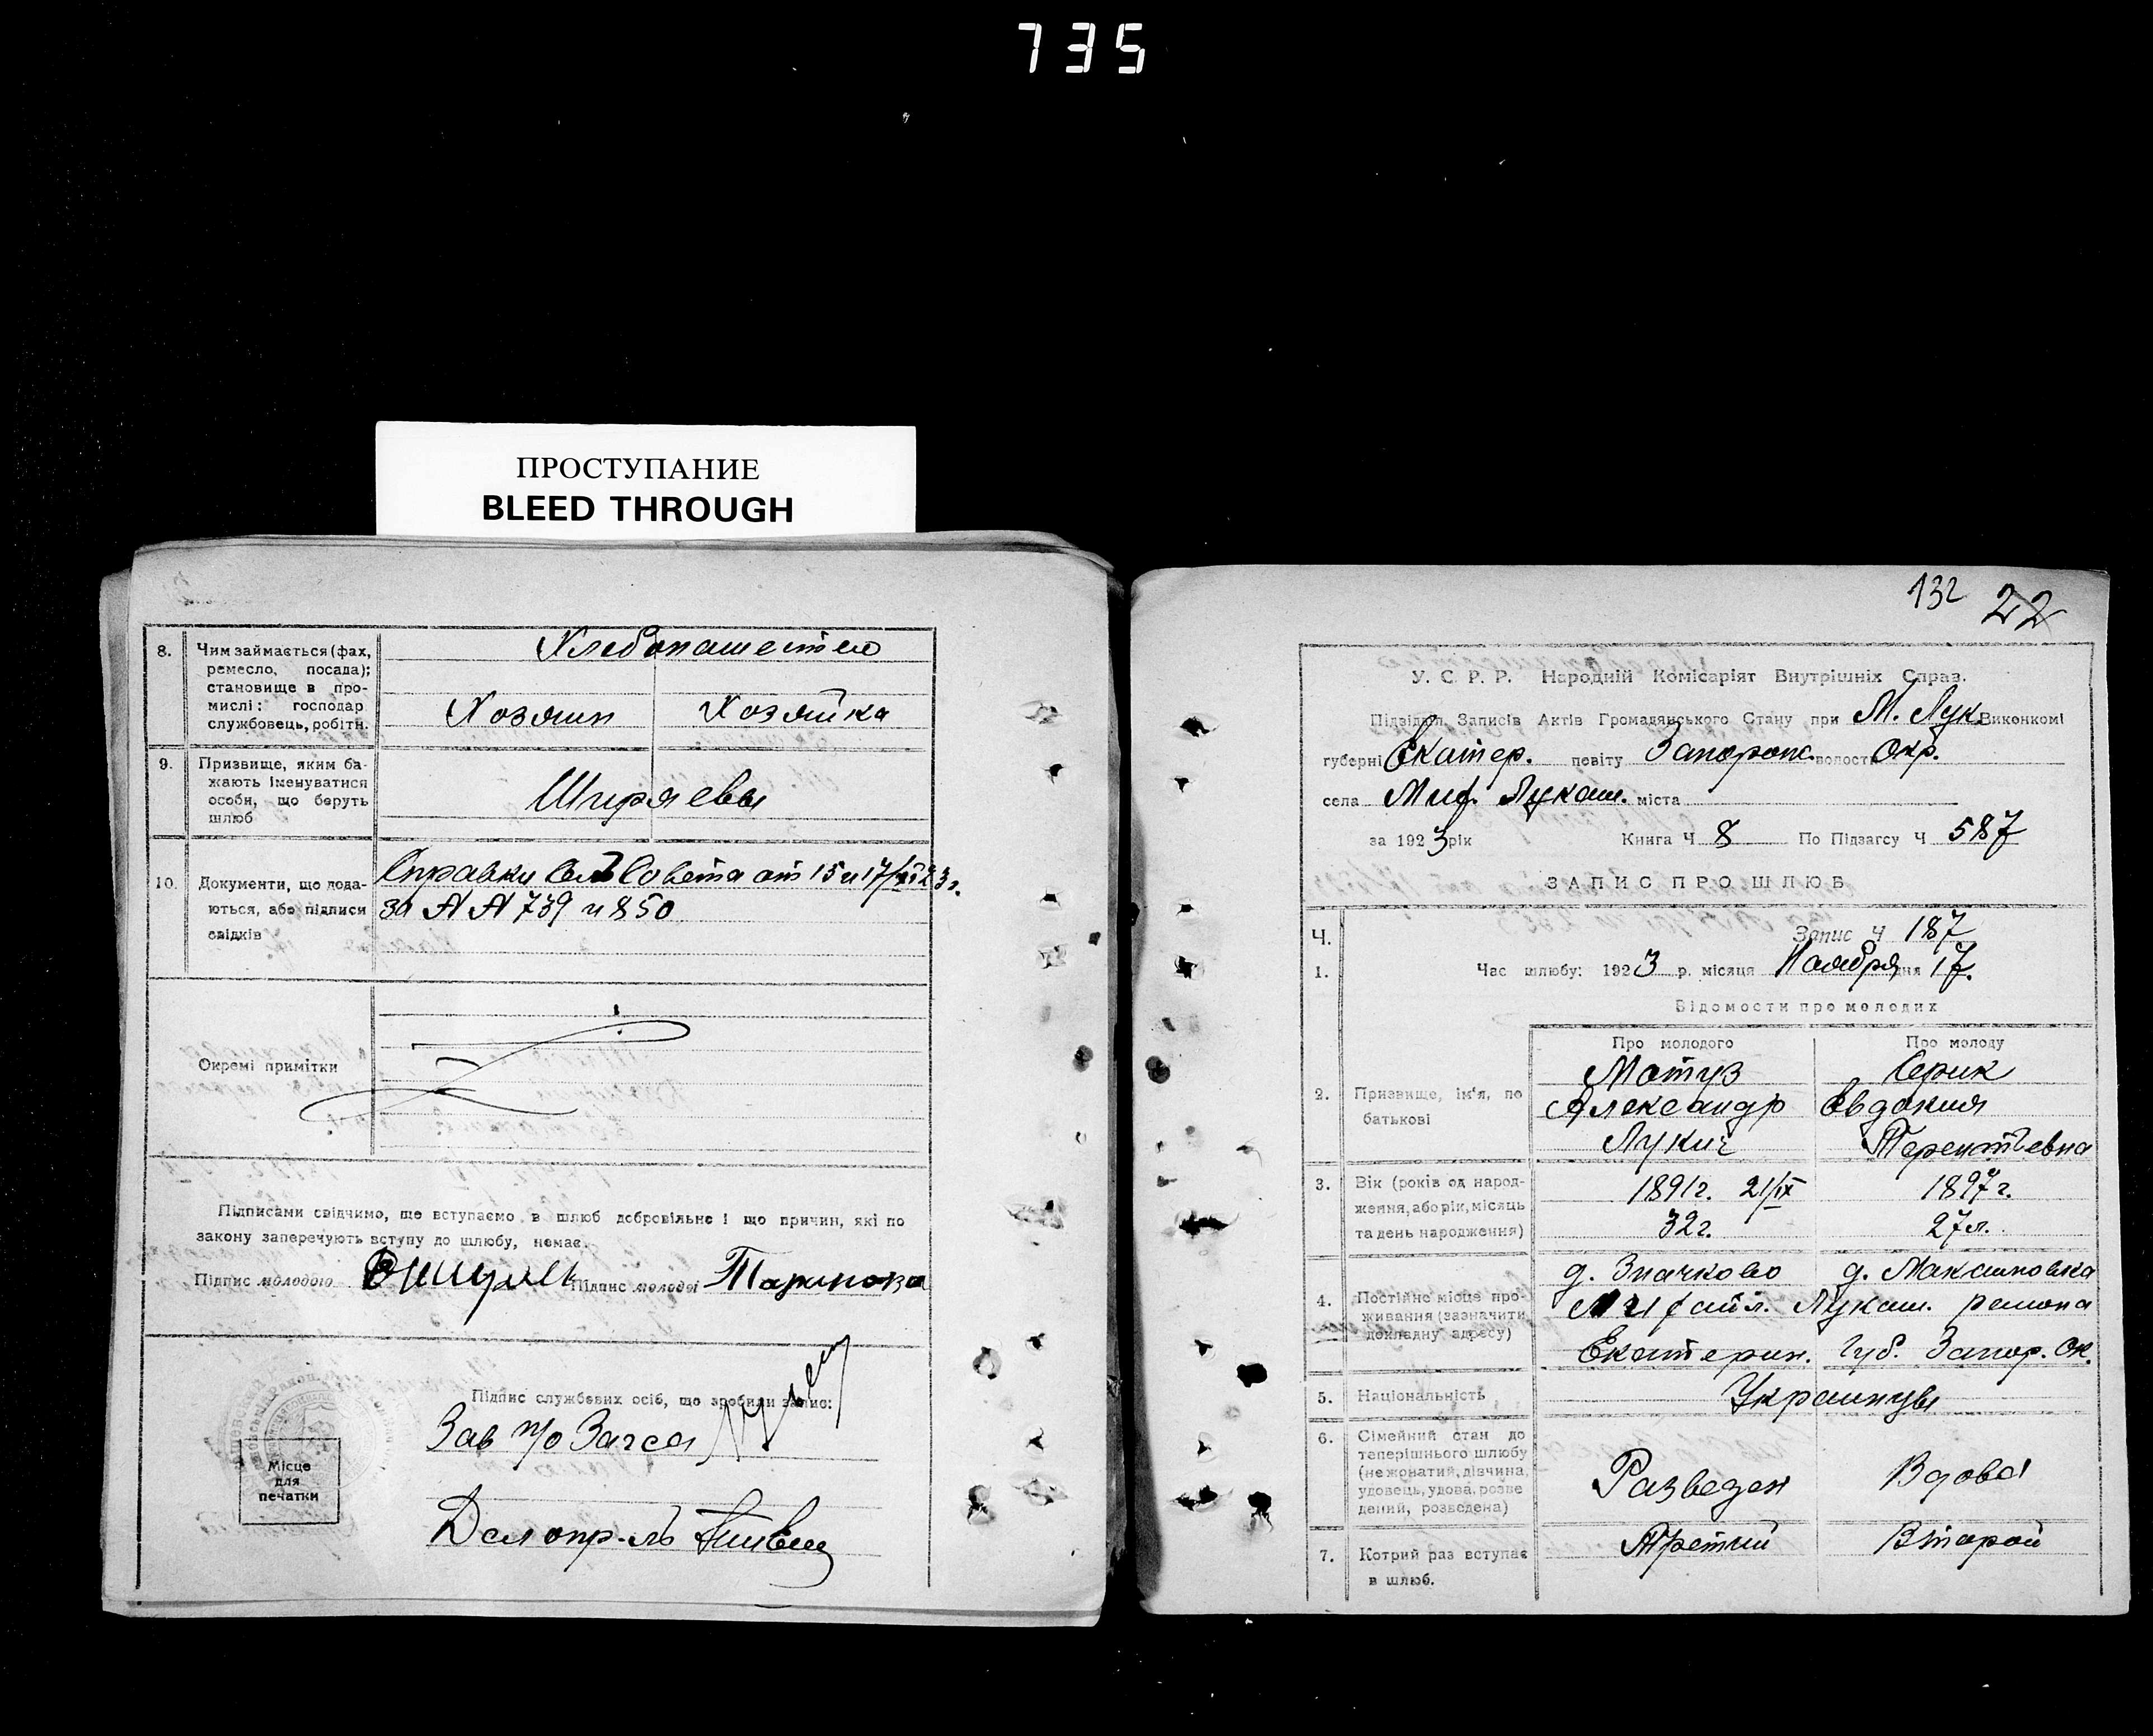 735
ПРОСТУПАНИЕ
BLEED THROUGH
8. Чим займається (фах, ремесло, посада); становище в промислі: господар службовець, робітн.
Хлебопашество
Хозяин Хозяйка
9. Призвище, яким бажають іменуватися особи, що беруть шлюб
Ширяевы
10. Документи, що додаються, або підписи свідків
Справки СельСовета от 15 и 17/XI 23 г.
за № № 739 и 850
Окремі примітки
Підписами свідчимо, що вступаємо в шлюб добровільно і що причин, які по
закону заперечують вступу до шлюбу, немає.
Підпис молодого Підпис молодої
Підпис службових осіб, що зробили запис:
Зав п/о Загса
Делопр-ль
Місце
для
печатки
132 22
У. С. Р. Р. Народній Комісаріят Внутрішніх Справ.
Підвідділ Записів Актів Громадянського Стану при М. Лук. Виконкомі
губерні Екатер. повіту Запорож. волости Окр.
села Мих. Лукаш. міста
за 1923 рік Книга Ч 8 По Підзагсу Ч 587
ЗАПИС ПРО ШЛЮБ
Ч. Запис Ч 187
1. Час шлюбу: 1923 р. місяця Ноября дня 17.
Відомости про молодих
Про молодого Про молоду
2. Призвище, ім'я, по батькові
Мотуз Серик
Александр Евдокия
Лукич Терентьевна
3. Вік (років од народження, або рік, місяць та день народження)
1891 г. 21/IX 1897 г.
32 г. 27 л.
4. Постійне місце проживання (зазначити докладну адресу)
д. Значково д. Макашовка
Михайл. Лукаш. района
Екатерин. Губ. Запор. Ок.
5. Національність Украинцы
6. Сімейний стан до теперішнього шлюбу (не жонатий, дівчина, удовець, удова, розведений, розведена)
Разведен Вдова
7. Котрий раз вступає в шлюб.
Третий Второй